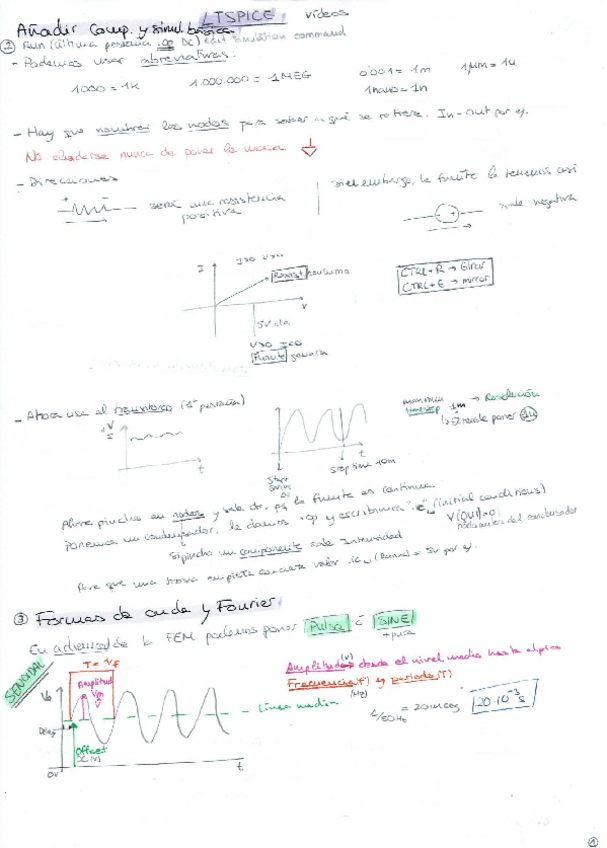 LTSPICE vídeos
Añadir Comp. y simul. básica
② Run (última pestaña .op DC) edit simulation command
- Podemos usar abreviativas:
1000 = 1K 1.000.000 = 1MEG 0'001 = 1m 1µm = 1u
1nano = 1n
- Hay que nombrar los nodos para saber a qué se refiere. In-out por ej.
No olvidarse nunca de poner la masa
- Direcciones
será una resistencia
positiva
sin embargo, la fuente la tenemos así
sale negativa
I>0 V>0
I
Resist consumo
V
5V cte
V>0 I<0
Fuente genera
CTRL+R → Girar
CTRL+E → mirror
- Ahora uso el transitorio (1ª pestaña)
V
I
t
Start
Stop time 10m
t
maximum
timestep 1m → Resolución
poner 1u
Ahora pincho en nodos y sale de. pq la fuente es continua.
Ponemos un condensador, le damos .op y escribimos (initial conditions)
V(OUT)=0
del condensador
Si pincho un componente sale Intensidad
Para que una bobina empiece con cierto valor = 5V por ej.
③ Formas de onda y Fourier
En de la FEM podemos poner Pulse o SINE
SENOIDAL
T = 1/f
Amplitud
Vm
Vo
Delay
Offset
DC (V)
0V
t
Línea media
(V)
Amplitud desde el nivel medio hasta el pico
Frecuencia (f) y periodo (T)
(Hz)
= 20 mseg 20·10⁻³ s
①